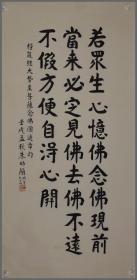 若眾生心憶佛念佛現前
當來必定見佛去佛不遠
不假方便自得心開
楞嚴經大勢至菩薩念佛圓通章句
壬戌孟秋朱幼蘭